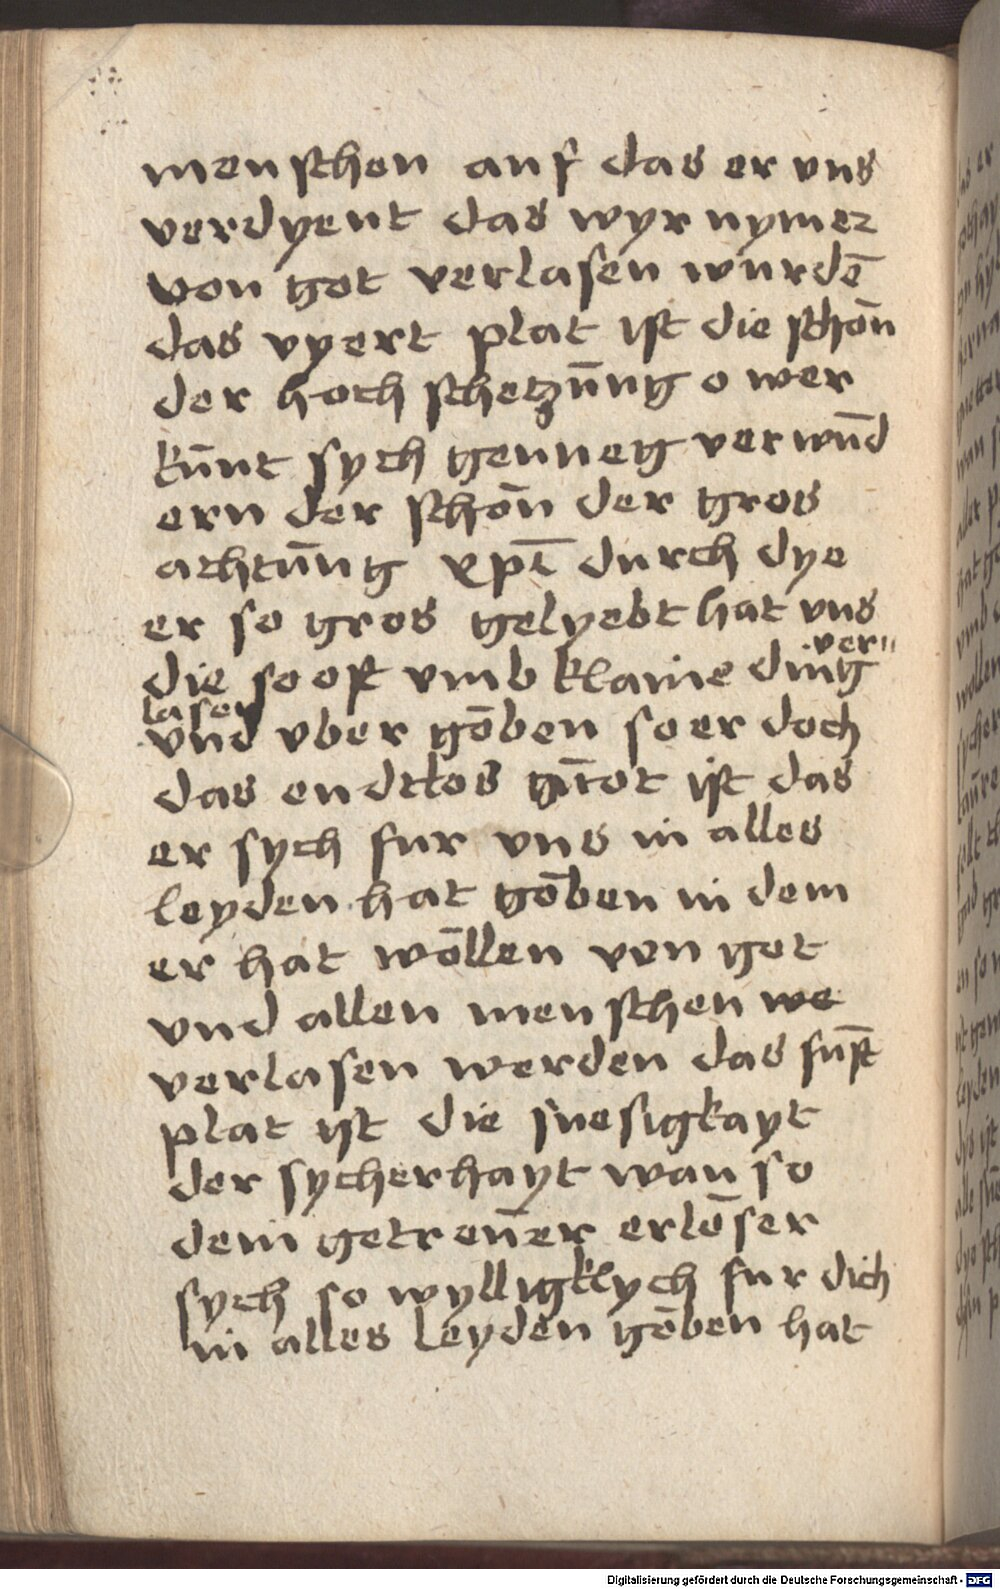 menschen auf das er vns
verdyent das wyr nymer
von got verlasen wurdē
das vyert plat ist die schōn
der hoch schetzūng o wer
kūnt sych genneg verwūd
ern der schōn der gros
achtūng xpī durch dye
er so gros gelyebt hat vns
die so oft vmb klaine ding ver"
lasen
vnd vber gōben so er doch
das endtlos gūtot ist das
er sych fur vns in alles
leyden hat gōben in dem
er hat wōllen von got
vnd allen menschen we
verlasen werden das fūft
plat ist die suesigkayt
der sycherhayt wan so
dein getreūer erlōser
sych so wylligklych fur dich
in alles leyden gōben hat
Digitalisierung gefördert durch die Deutsche Forschungsgemeinschaft - DFG